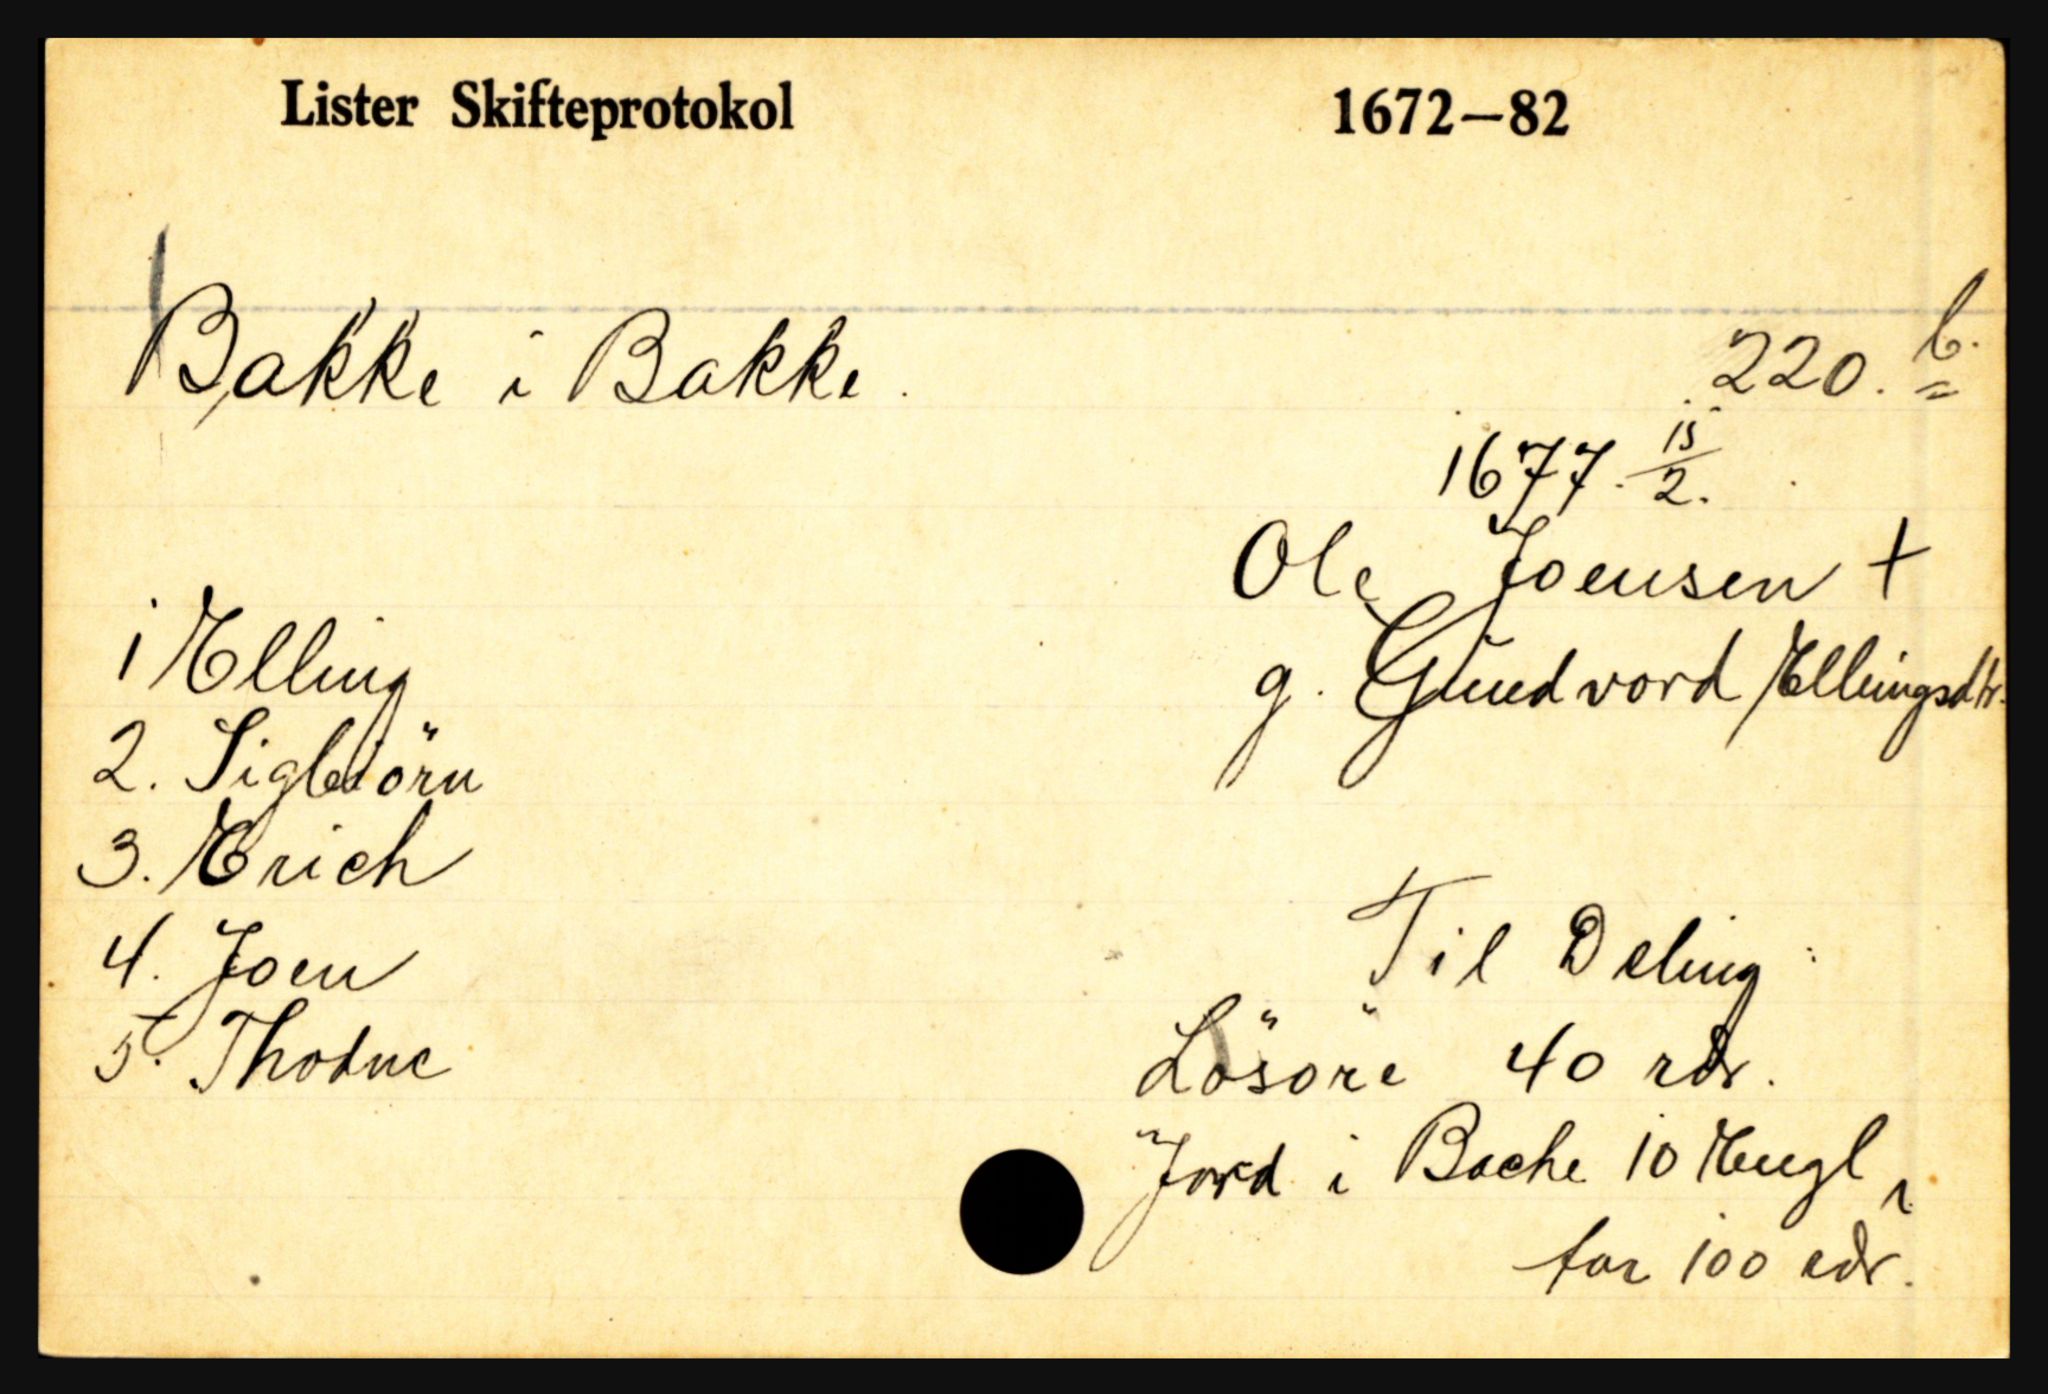 Lister Skifteprotokol 1672-82
Bakke i Bakke. 220. b.
1677. 15/2.
Ole Joensen +
g. Gundvord Ellingsdtr.
1 Elling
2. Sigbiörn
3. Erich
4. Joen
5. Thodne
Til Deling:
Lösöre 40 rdr.
Jord i Bache 10 Hugl
for 100 rdr.